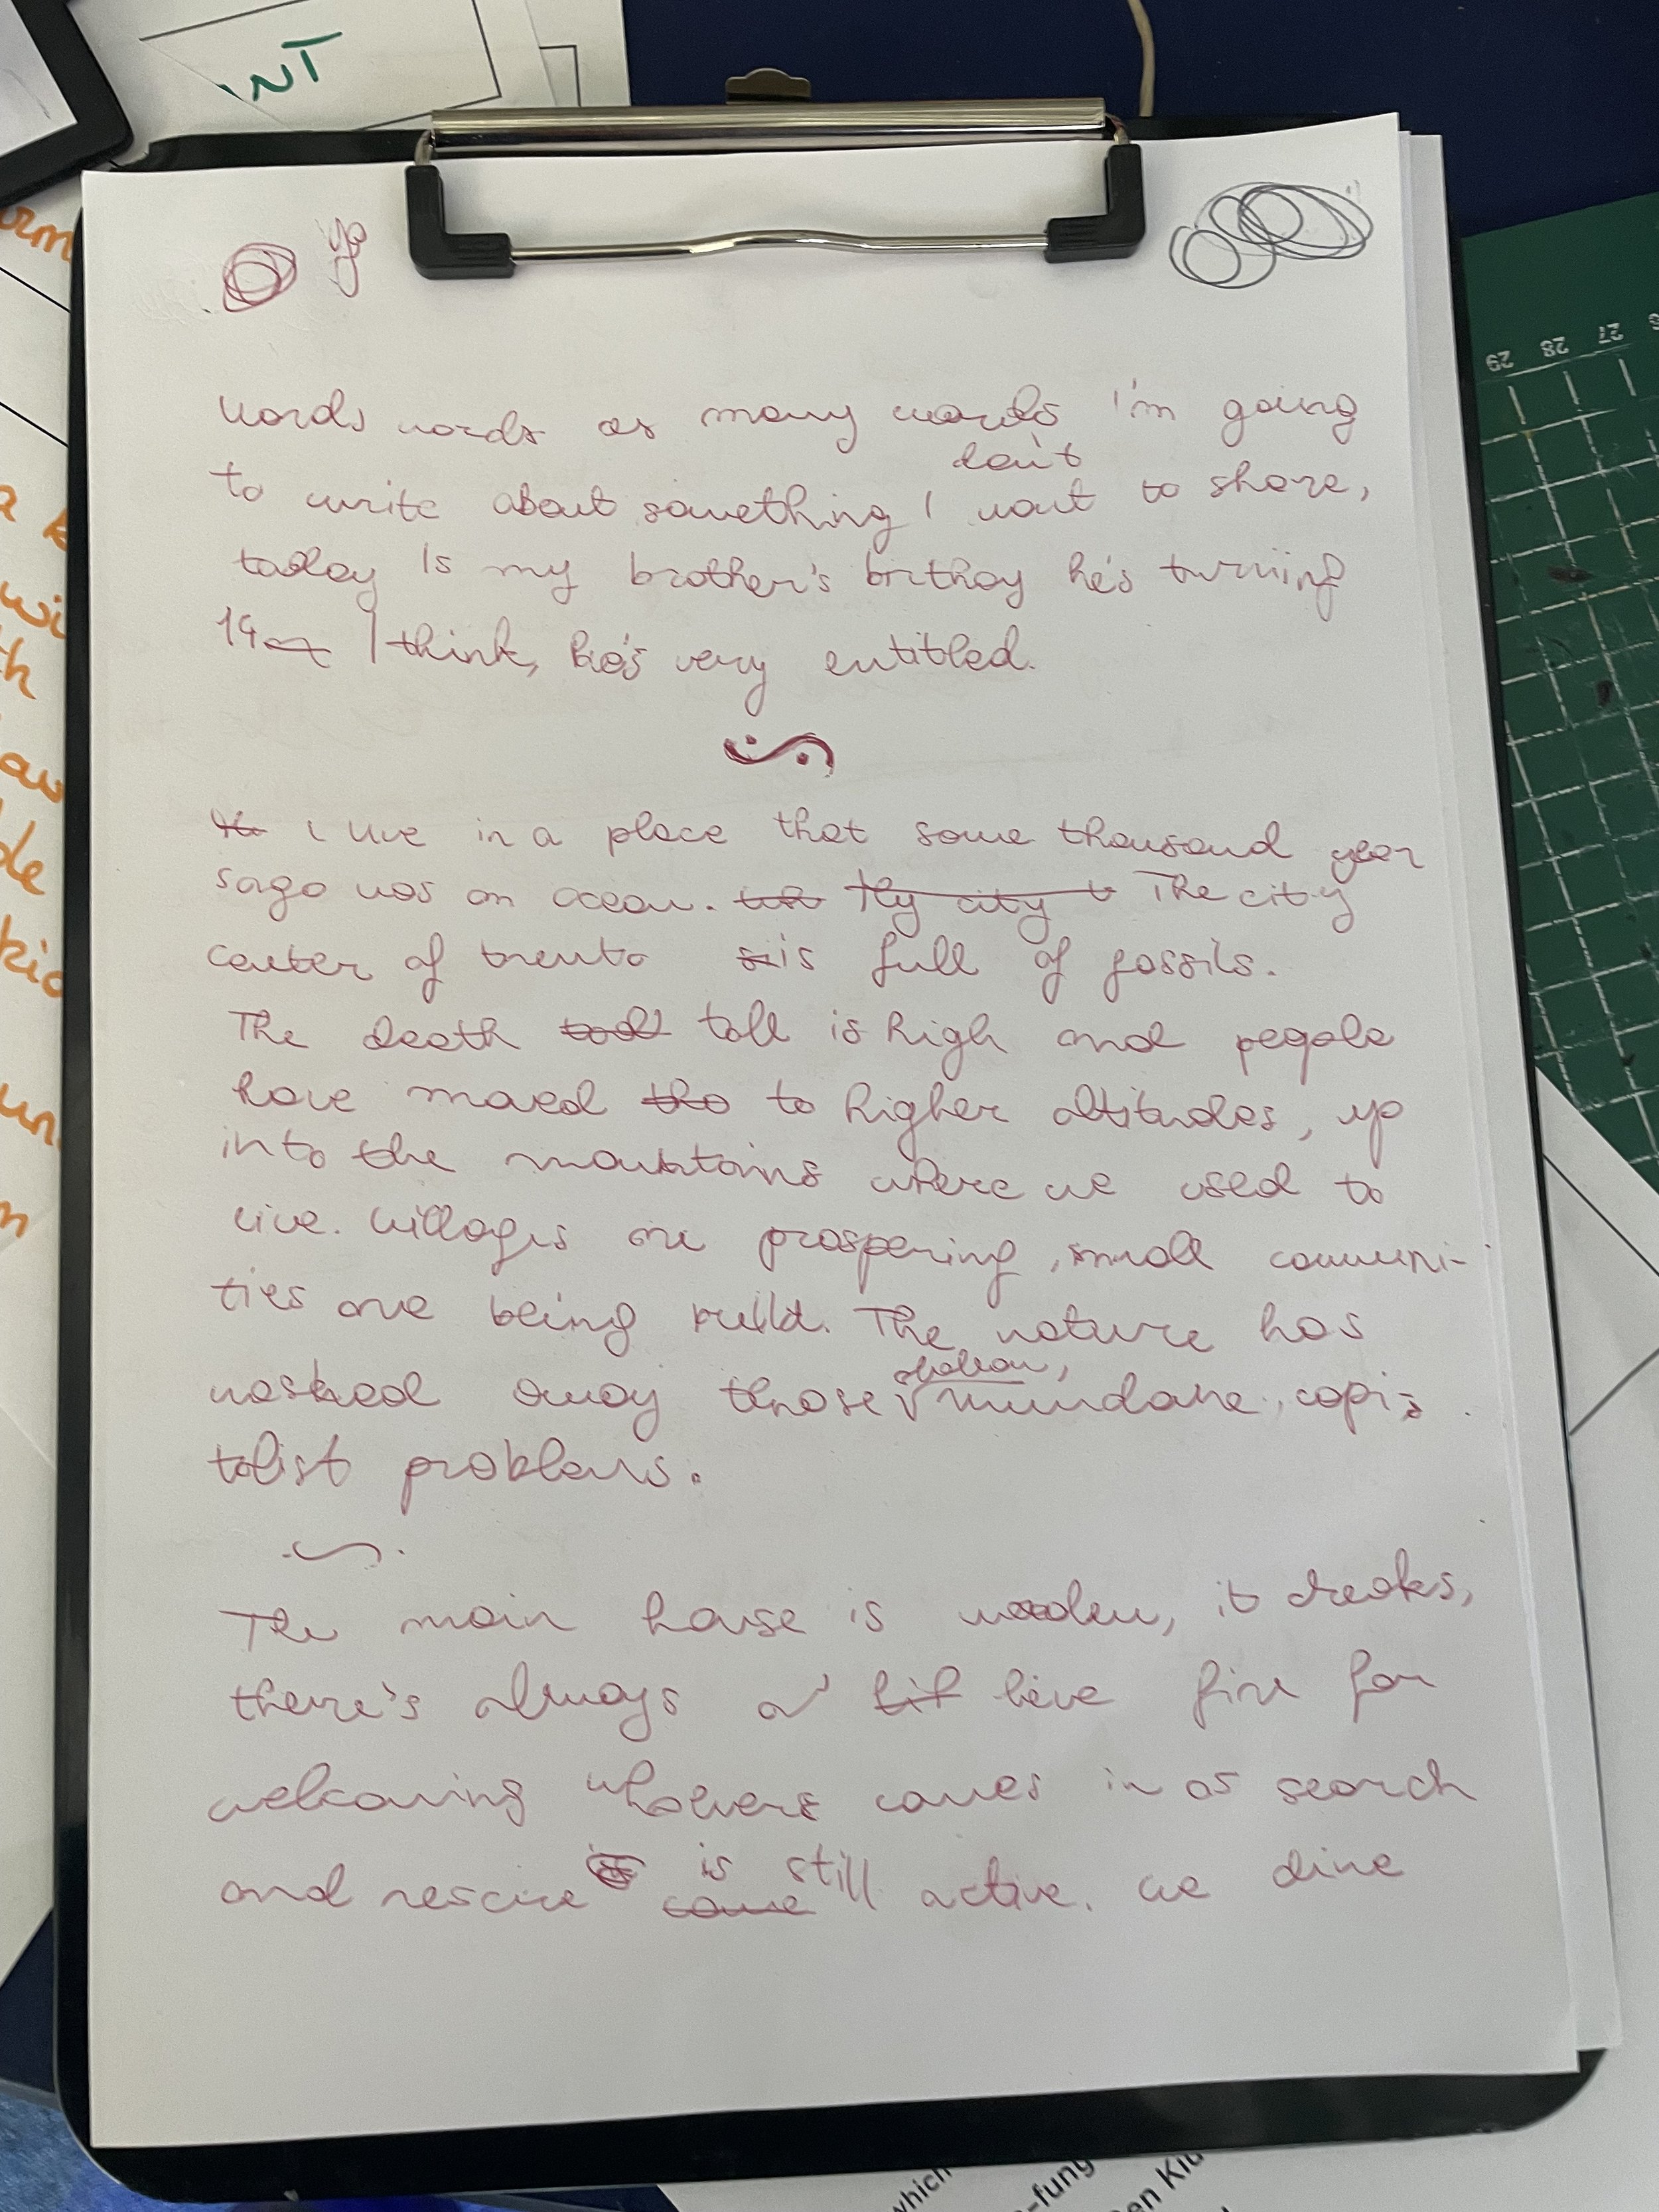 NT
words words as many words i'm going
to write about something I don't want to share,
today Is my brother's birthay he's turning
14 I think, he's very entitled.
I live in a place that some thousand year
sago was an ocean. The city
center of trento is full of fossils.
The death toll is high and people
have moved to higher altitudes, up
into the mountains where we used to
live. Villages are prospering, small communi-
ties are being build. The nature has
washed away those mundane, capi-
talist problems.
The main house is wooden, it creaks,
there's always a live fire for
welcoming whoevers comes in as search
and rescue is still active. we dine
29 28 27
which
-fung